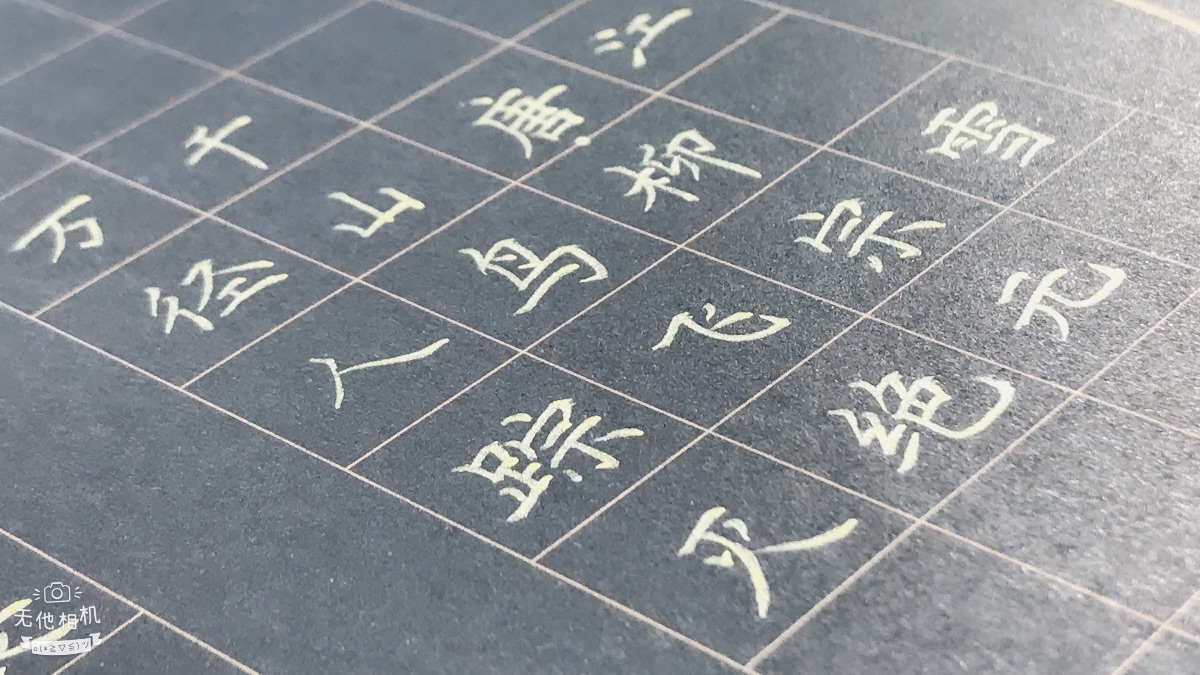 江雪
唐·柳宗元
千山鸟飞绝
万径人踪灭
无他相机